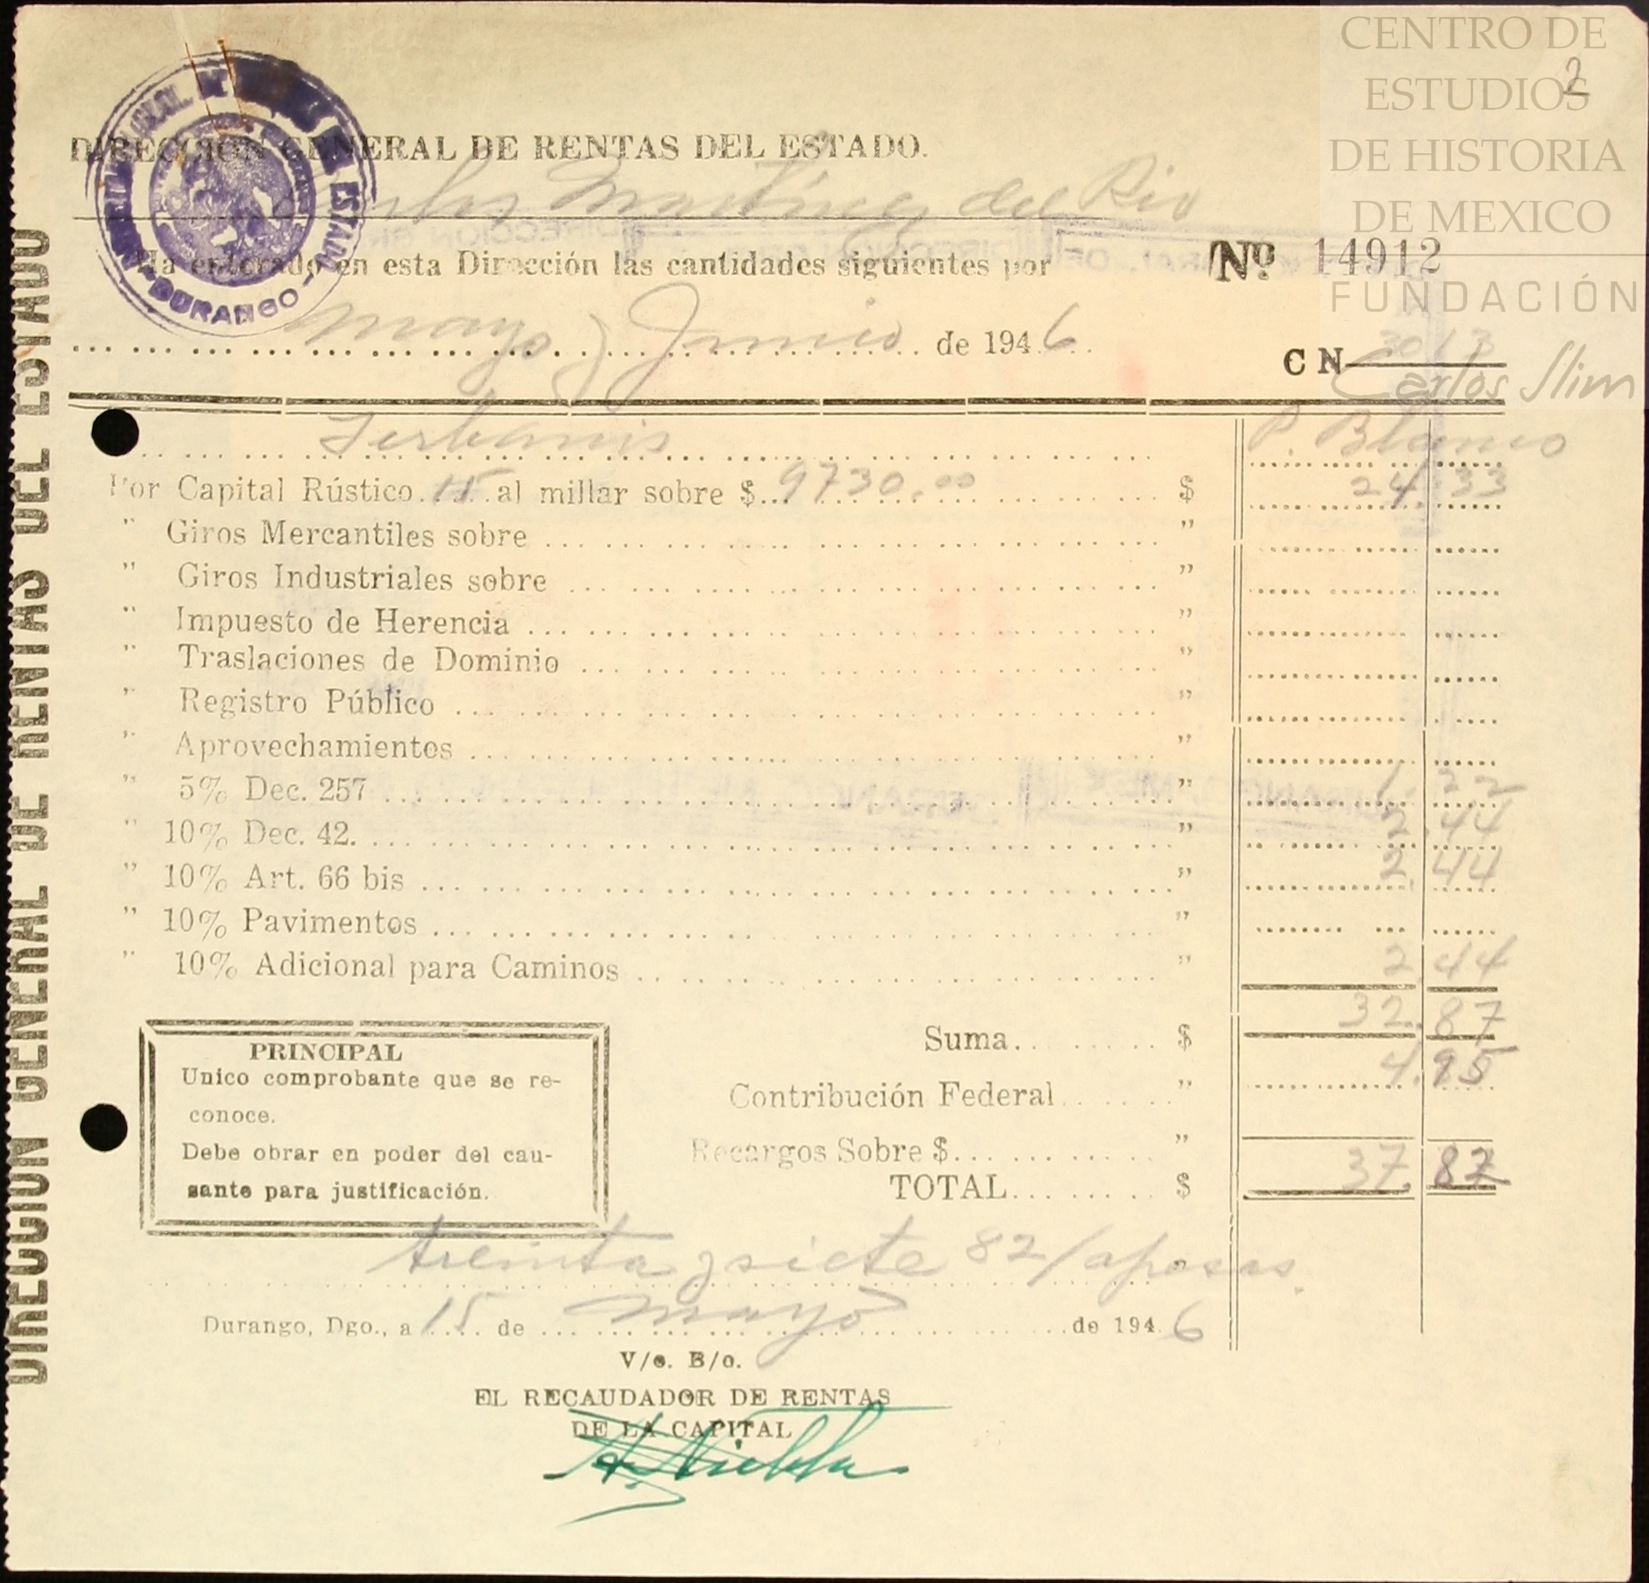 CENTRO DE
ESTUDIOS
DE HISTORIA
DE MEXICO
FUNDACIÓN
Carlos Slim
2
DIRECCION GENERAL DE RENTAS DEL ESTADO
DURANGO
DIRECCION GENERAL DE RENTAS DEL ESTADO.
Carlos Martínez del Rio
Ha enterado en esta Dirección las cantidades siguientes por
Nº 14912
Mayo y Junio de 1946
C N 3013
P. Blanco
Por Capital Rústico 15 al millar sobre $ 9730.00 $ 24.33
" Giros Mercantiles sobre "
" Giros Industriales sobre "
" Impuesto de Herencia "
" Traslaciones de Dominio "
" Registro Público "
" Aprovechamientos "
" 5% Dec. 257 " 1.22
" 10% Dec. 42. " 2.44
" 10% Art. 66 bis " 2.44
" 10% Pavimentos "
" 10% Adicional para Caminos " 2.44
Suma $ 32.87
Contribución Federal " 4.95
Recargos Sobre $ "
TOTAL $ 37.82
PRINCIPAL
Unico comprobante que se re-
conoce.
Debe obrar en poder del cau-
sante para justificación.
treinta y siete 82/ pesos.
Durango, Dgo., a 15 de mayo de 1946
V/o. B/o.
EL RECAUDADOR DE RENTAS
DE LA CAPITAL